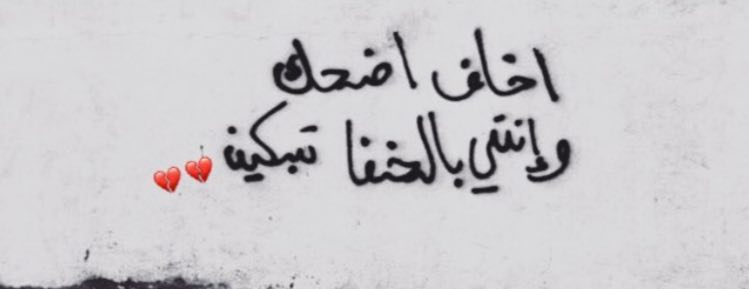 اخاف اضحك
وإنتي بالخفا تبكين 💔💔